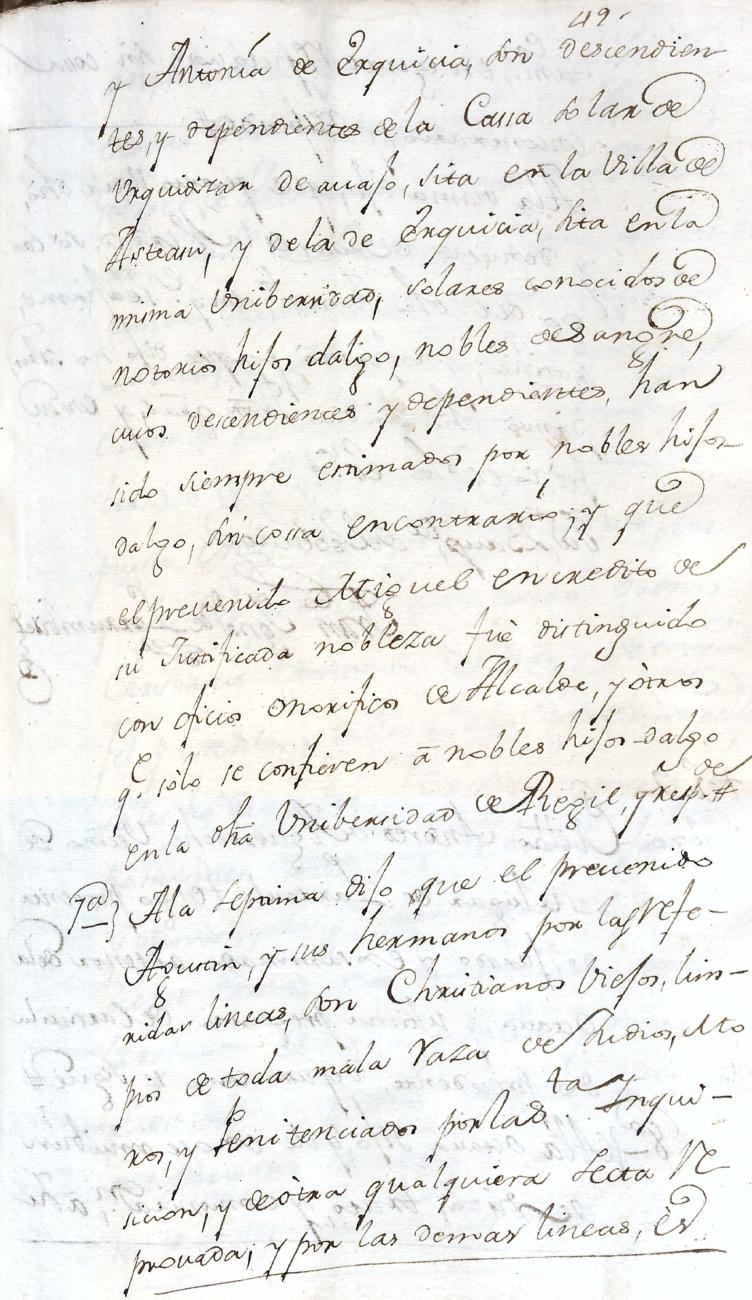 119
y Antonia de Erquicia, son descendien
tes, y dependientes de la Cassa solar de
Urquidizar de avaso, sita en la Villa de
Asteasu, y de la de Erquicia, sita en la
misma Unibersidad, solares conocidos de
notorios hijos dalgo, nobles de sangre,
cuios descendientes y dependientes, han
sido siempre estimados por nobles hijos
dalgo, sin cossa en contrario; y que
el prevenido Miguel en credito de
su Justificada nobleza fuè distinguido
con oficios onorificos de Alcalde, y òtros
q.e sòlo se confieren a nobles hijos-dalgo
en la dha Unibersidad de Regil, y resp.de
7a} A la septima dijo que el prevenido
Agustin, y sus hermanos por las refe-
ridas lineas, son Christianos Viejos, lim-
pios de toda mala raza de Judios, Mo
ros, y Penitenciados por la S.ta Inqui-
sicion, y de òtra qualquiera secta re
provada; y por las demas lineas, ès